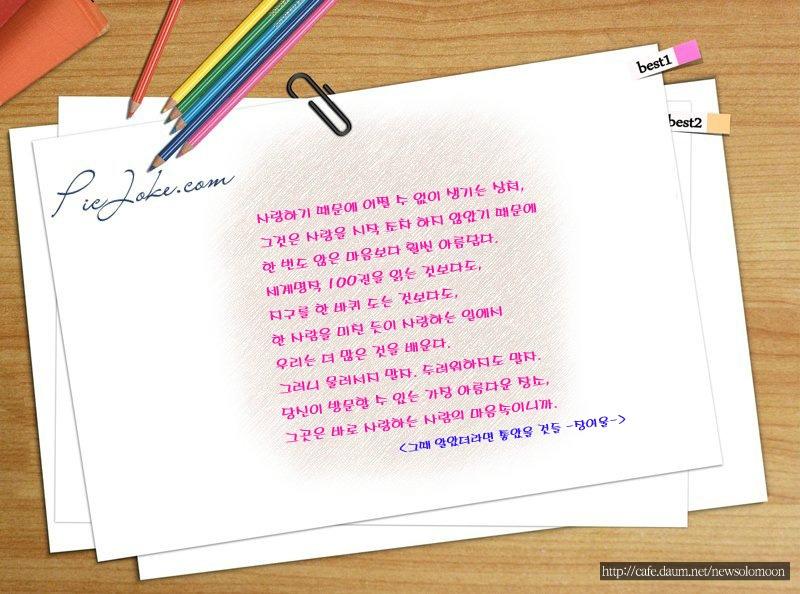 best1
best2
PicJoke.com
사랑하기 때문에 어쩔 수 없이 생기는 상처,
그것은 사랑을 시작 조차 하지 않았기 때문에
한 번도 않은 마음보다 훨씬 아름답다.
세계명작 100권을 읽는 것보다도,
지구를 한 바퀴 도는 것보다도,
한 사람을 미친 듯이 사랑하는 일에서
우리는 더 많은 것을 배운다.
그러니 물러서지 말자. 두려워하지도 말자.
당신이 방문할 수 있는 가장 아름다운 장소,
그곳은 바로 사랑하는 사람의 마음속이니까.
<그때 알았더라면 좋았을 것들 -장이울->
http://cafe.daum.net/newsolomoon